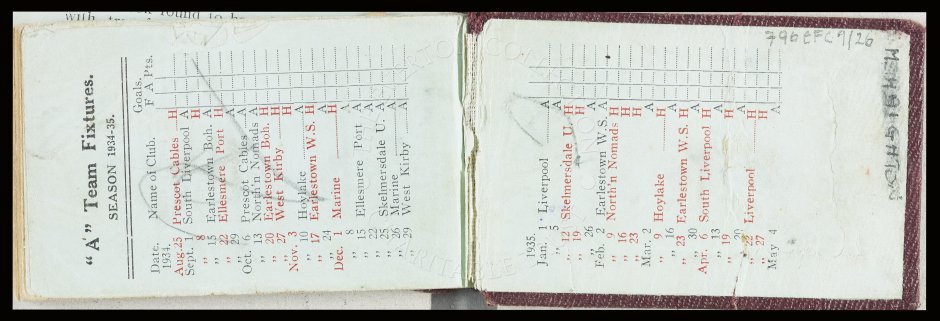 "A" Team Fixtures.
SEASON 1934-35.
Goals.
Date. Name of Club. F A Pts.
1934.
Aug. 25 Prescot Cables H
Sept. 1 South Liverpool A
,, 8 H
,, 15 Earlestown Boh. A
,, 22 Ellesmere Port H
,, 29 A
Oct. 6 Prescot Cables A
,, 13 North'n Nomads A
,, 20 Earlestown Boh. H
,, 27 West Kirby H
Nov. 3 H
,, 10 Hoylake A
,, 17 Earlestown W.S. H
,, 24 H
Dec. 1 Marine H
,, 8 A
,, 15 Ellemere Port A
,, 22 A
,, 25 Skelmersdale U. A
,, 26 Marine A
,, 29 West Kirby A
1935.
Jan. 1 Liverpool A
,, 5 A
,, 12 Skelmersdale U. H
,, 19 H
,, 26 A
Feb. 2 Earlestown W.S. A
,, 9 North'n Nomads H
,, 16 H
,, 23 H
Mar. 2 A
,, 9 Hoylake H
,, 16 A
,, 23 Earlestown W.S. H
,, 30 A
Apr. 6 South Liverpool H
,, 13 A
,, 19 H
,, 20 A
,, 22 Liverpool H
,, 27 H
May 4 A
796 EFC 9/26